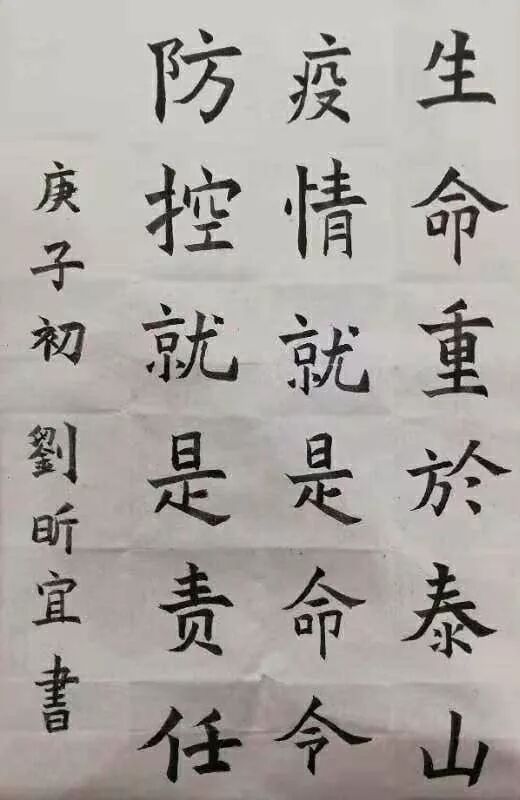 生命重於泰山
疫情就是命令
防控就是责任
庚子初 劉昕宜書